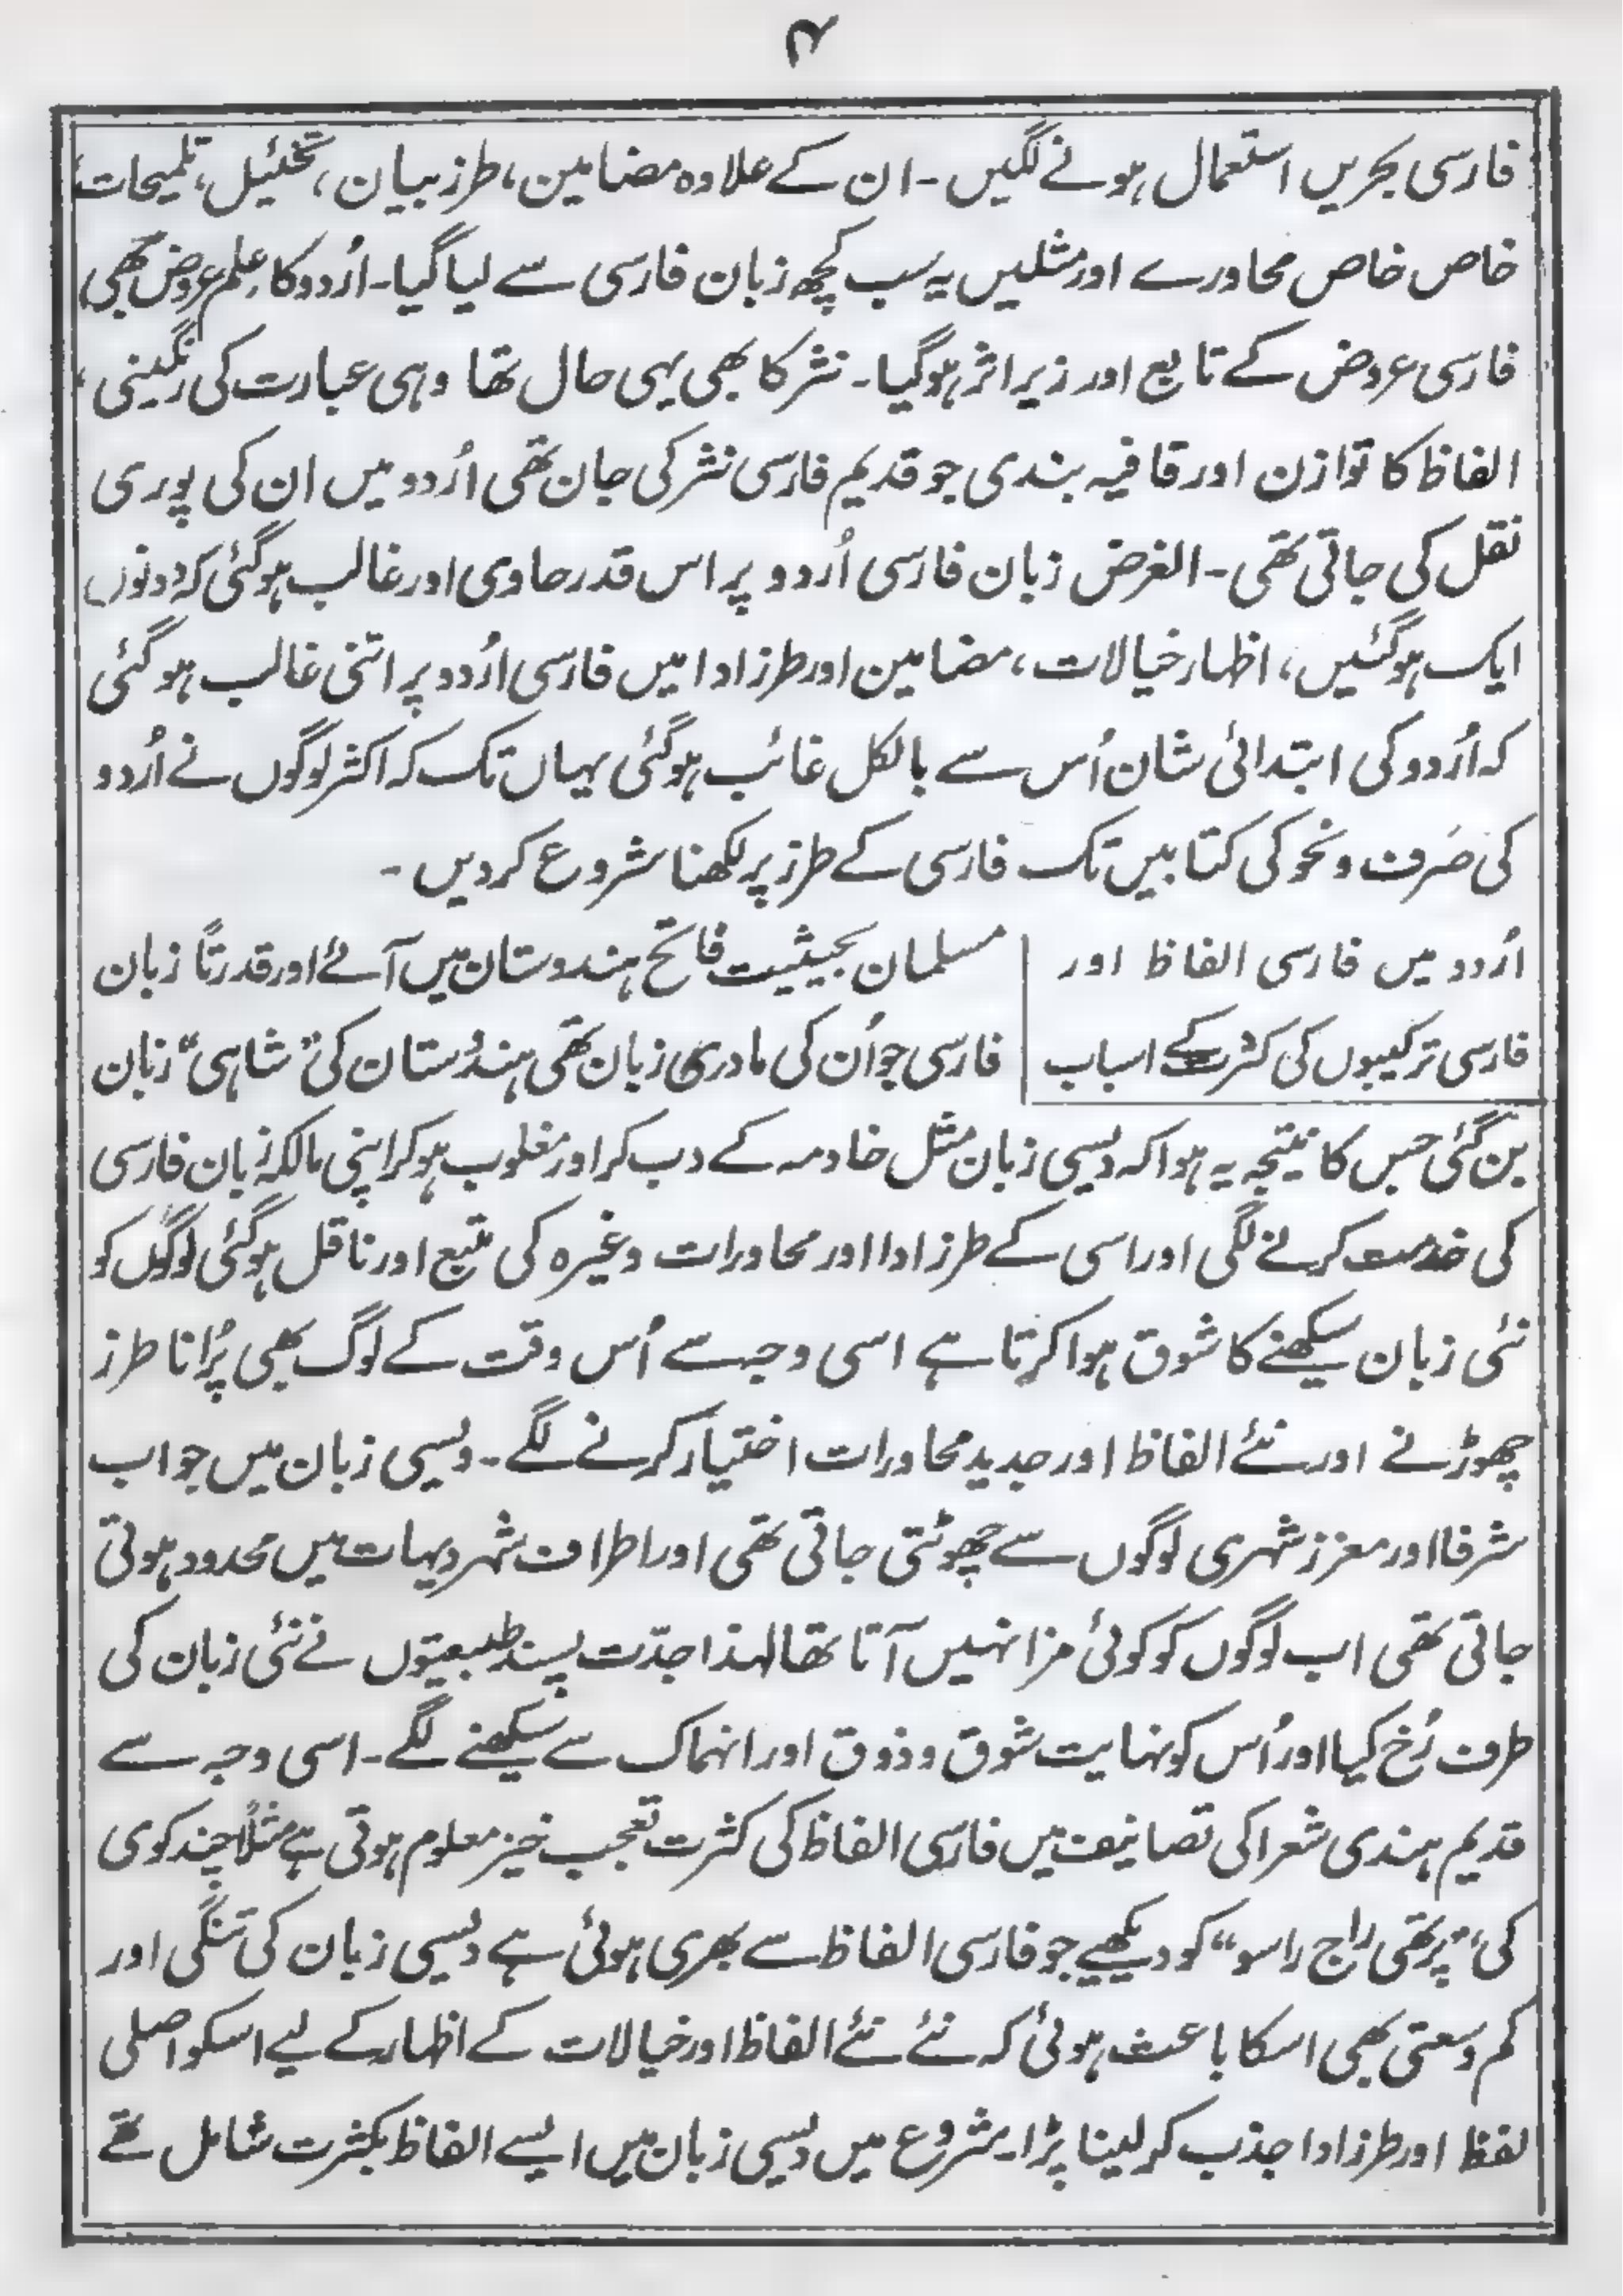 ۴
فارسی بحریں استعمال ہونے لگیں۔ ان کے علاوہ مضامین، طرز بیان، تخئیل، تلمیحات،
خاص خاص محاورے اور مثلیں یہ سب کچھ زبان فارسی سے لیا گیا۔ اُردو کا علم عروض بھی،
فارسی عروض کے تابع اور زیر اثر ہو گیا۔ نثر کا بھی یہی حال تھا وہی عبارت کی رنگینی،
الفاظ کا توازن اور قافیہ بندی جو قدیم فارسی نثر کی جان تھی اُردو میں ان کی پوری
نقل کی جاتی تھی۔ الغرض زبان فارسی اُردو پر اس قدر حاوی اور غالب ہو گئی کہ دونوں
ایک ہو گئیں، اظہار خیالات، مضامین اور طرز ادا میں فارسی اُردو پر اتنی غالب ہو گئی
کہ اُردو کی ابتدائی شان اُس سے بالکل غائب ہو گئی یہاں تک کہ اکثر لوگوں نے اُردو
کی صَرف و نحو کی کتابیں تک فارسی کے طرز پر لکھنا شروع کر دیں۔
اُردو میں فارسی الفاظ اور
فارسی ترکیبوں کی کثرت کے اسباب
مسلمان بحیثیت فاتح ہندوستان میں آئے اور قدرتاً زبان
فارسی جو اُن کی مادری زبان تھی ہندُستان کی "شاہی" زبان
بن گئی جس کا نتیجہ یہ ہوا کہ دیسی زبان مثل خادمہ کے دب کر اور مغلوب ہو کر اپنی مالکہ زبان فارسی
کی خدمت کرنے لگی اور اسی کے طرز ادا اور محاورات وغیرہ کی متبع اور ناقل ہو گئی لوگوں کو
نئی زبان سیکھنے کا شوق ہوا کرتا ہے اسی وجہ سے اُس وقت کے لوگ بھی پُرانا طرز
چھوڑنے اور نئے الفاظ اور جدید محاورات اختیار کرنے لگے۔ دیسی زبان میں جو اب
شرفا اور معزز شہری لوگوں سے چھوٹتی جاتی تھی اور اطراف شہر دیہات میں محدود ہوتی
جاتی تھی اب لوگوں کو کوئی مزا نہیں آتا تھا لہذا جدّت پسند طبیعتوں نے نئی زبان کی
طرف رُخ کیا اور اُس کو نہایت شوق و ذوق اور انہماک سے سیکھنے لگے۔ اسی وجہ سے
قدیم ہندی شعرا کی تصانیف میں فارسی الفاظ کی کثرت تعجب خیز معلوم ہوتی ہے مثلاً چند کوی
کی "پرتھی راج راسو" کو دیکھیے جو فارسی الفاظ سے بھری ہوئی ہے دیسی زبان کی تنگی اور
کم وسعتی بھی اسکا باعث ہوئی کہ نئے نئے الفاظ اور خیالات کے اظہار کے لیے اسکو اصلی
لفظ اور طرز ادا جذب کر لینا پڑا۔ شروع میں دیسی زبان میں ایسے الفاظ بکثرت شامل تھے